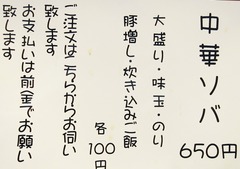 中華ソバ
650円
大盛り・味玉・のり
豚増し・炊き込みご飯
各100円
ご注文はこちらからお伺い
致します
お支払いは前金でお願い
致します